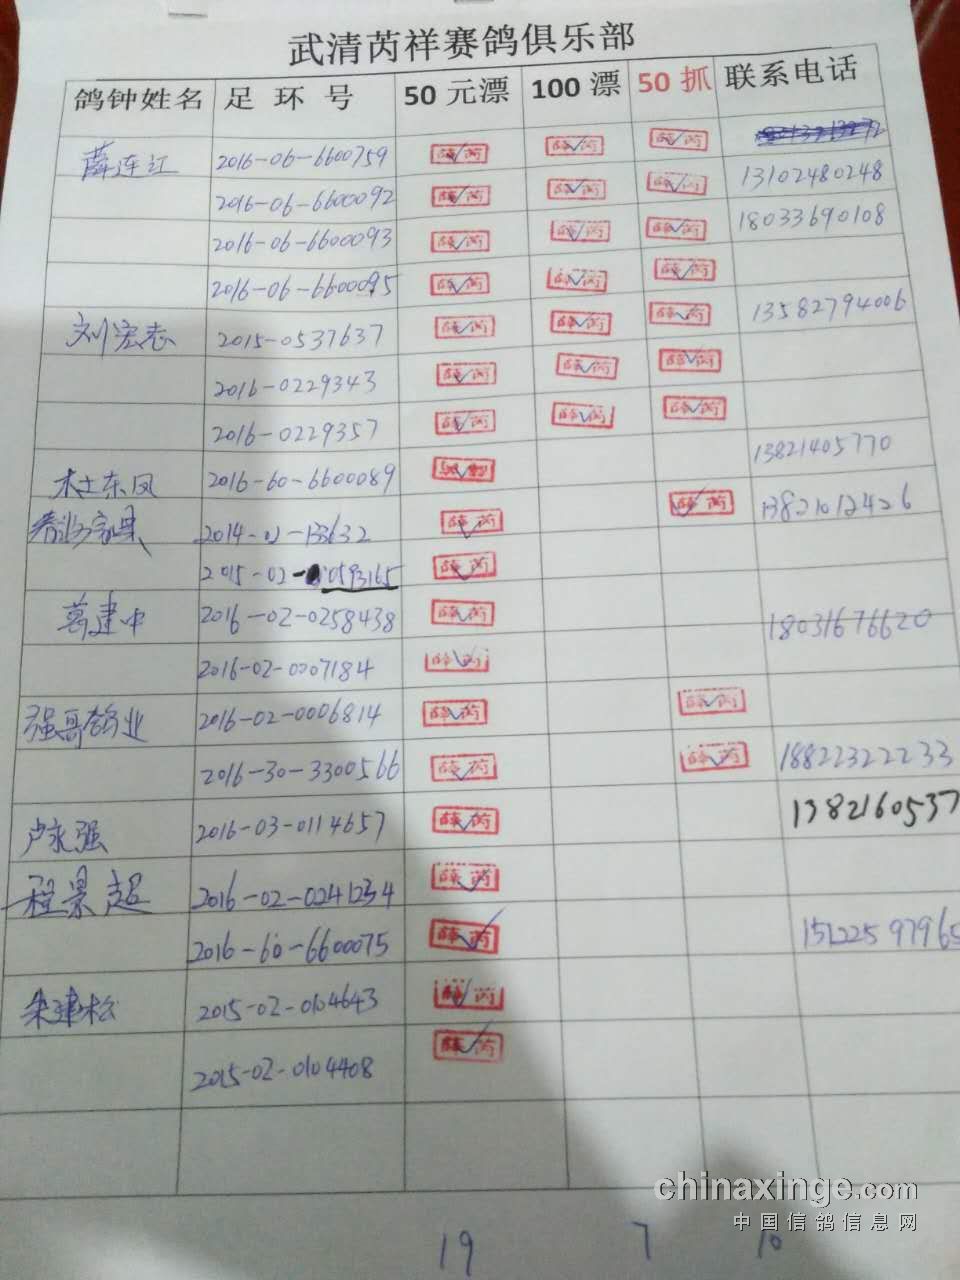 武清芮祥赛鸽俱乐部
鸽钟姓名 足环号 50元漂 100漂 50抓 联系电话
薛连江 2016-06-6600759 薛芮 薛芮 薛芮
2016-06-6600092 薛芮 薛芮 薛芮 13102480248
2016-06-6600093 薛芮 薛芮 薛芮 18033690108
2016-06-6600095 薛芮 薛芮 薛芮
刘宏志 2015-0537637 薛芮 薛芮 薛芮 13582794006
2016-0229343 薛芮 薛芮 薛芮
2016-0229357 薛芮 薛芮 薛芮
东凤 2016-60-6600089 13821405770
2014-02-133632 薛芮 薛芮 13821012426
2015-02-0593165 薛芮
葛建中 2016-02-0258438 薛芮 18031676620
2016-02-0007184 薛芮
强哥鸽业 2016-02-0006814 薛芮 薛芮
2016-30-3300566 薛芮 薛芮 18822322233
卢永强 2016-03-0114657 薛芮 1382160537
程景超 2016-02-0241234 薛芮
2016-60-6600075 薛芮 1512259796
朱建松 2015-02-0104643 薛芮
2015-02-0104408 薛芮
chinaxinge.com
中国信鸽信息网
19 7 10